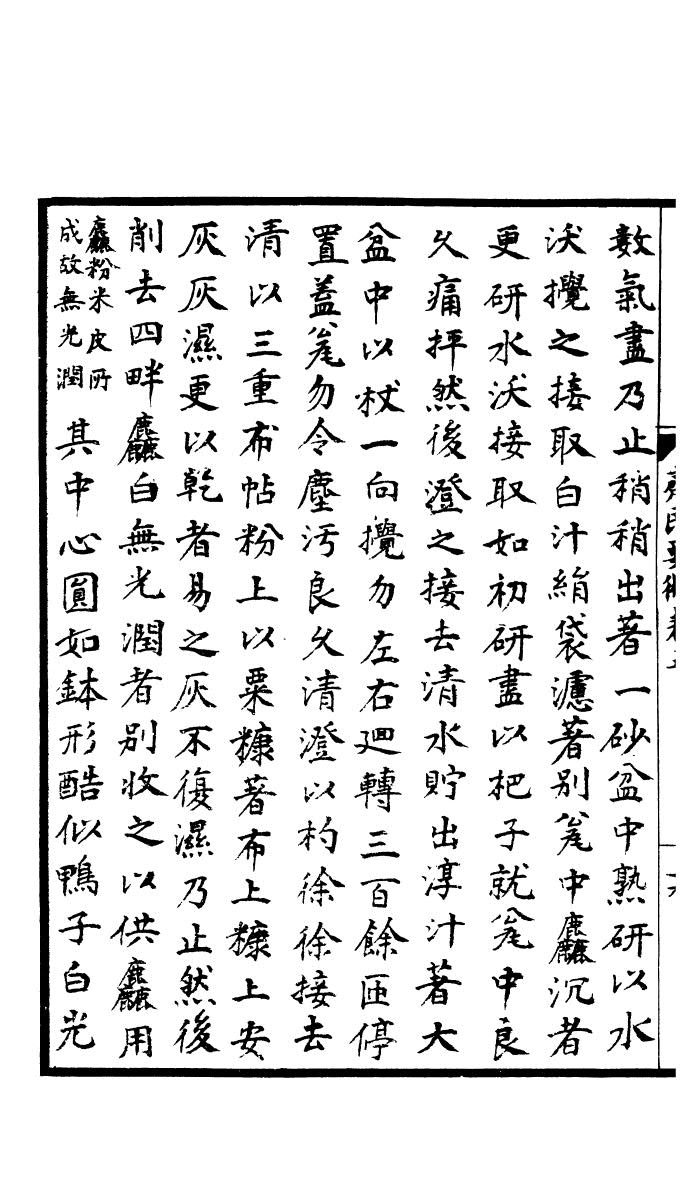 齊民要術卷五
十六
數氣盡乃止稍稍出著一砂盆中熟研以水
沃攪之接取白汁絹袋濾著別瓮中麤沉者
更研水沃接取如初研盡以杷子就瓮中良
久痛抨然後澄之接去清水貯出淳汁著大
盆中以杖一向攪勿左右廻轉三百餘匝停
置蓋瓮勿令塵汚良久清澄以杓徐徐接去
清以三重布帖粉上以粟糠著布上糠上安
灰灰濕更以乾者易之灰不復濕乃止然後
削去四畔麤白無光潤者別收之以供麤用
麤粉米皮所
成故無光潤
其中心圓如鉢形酷似鴨子白光